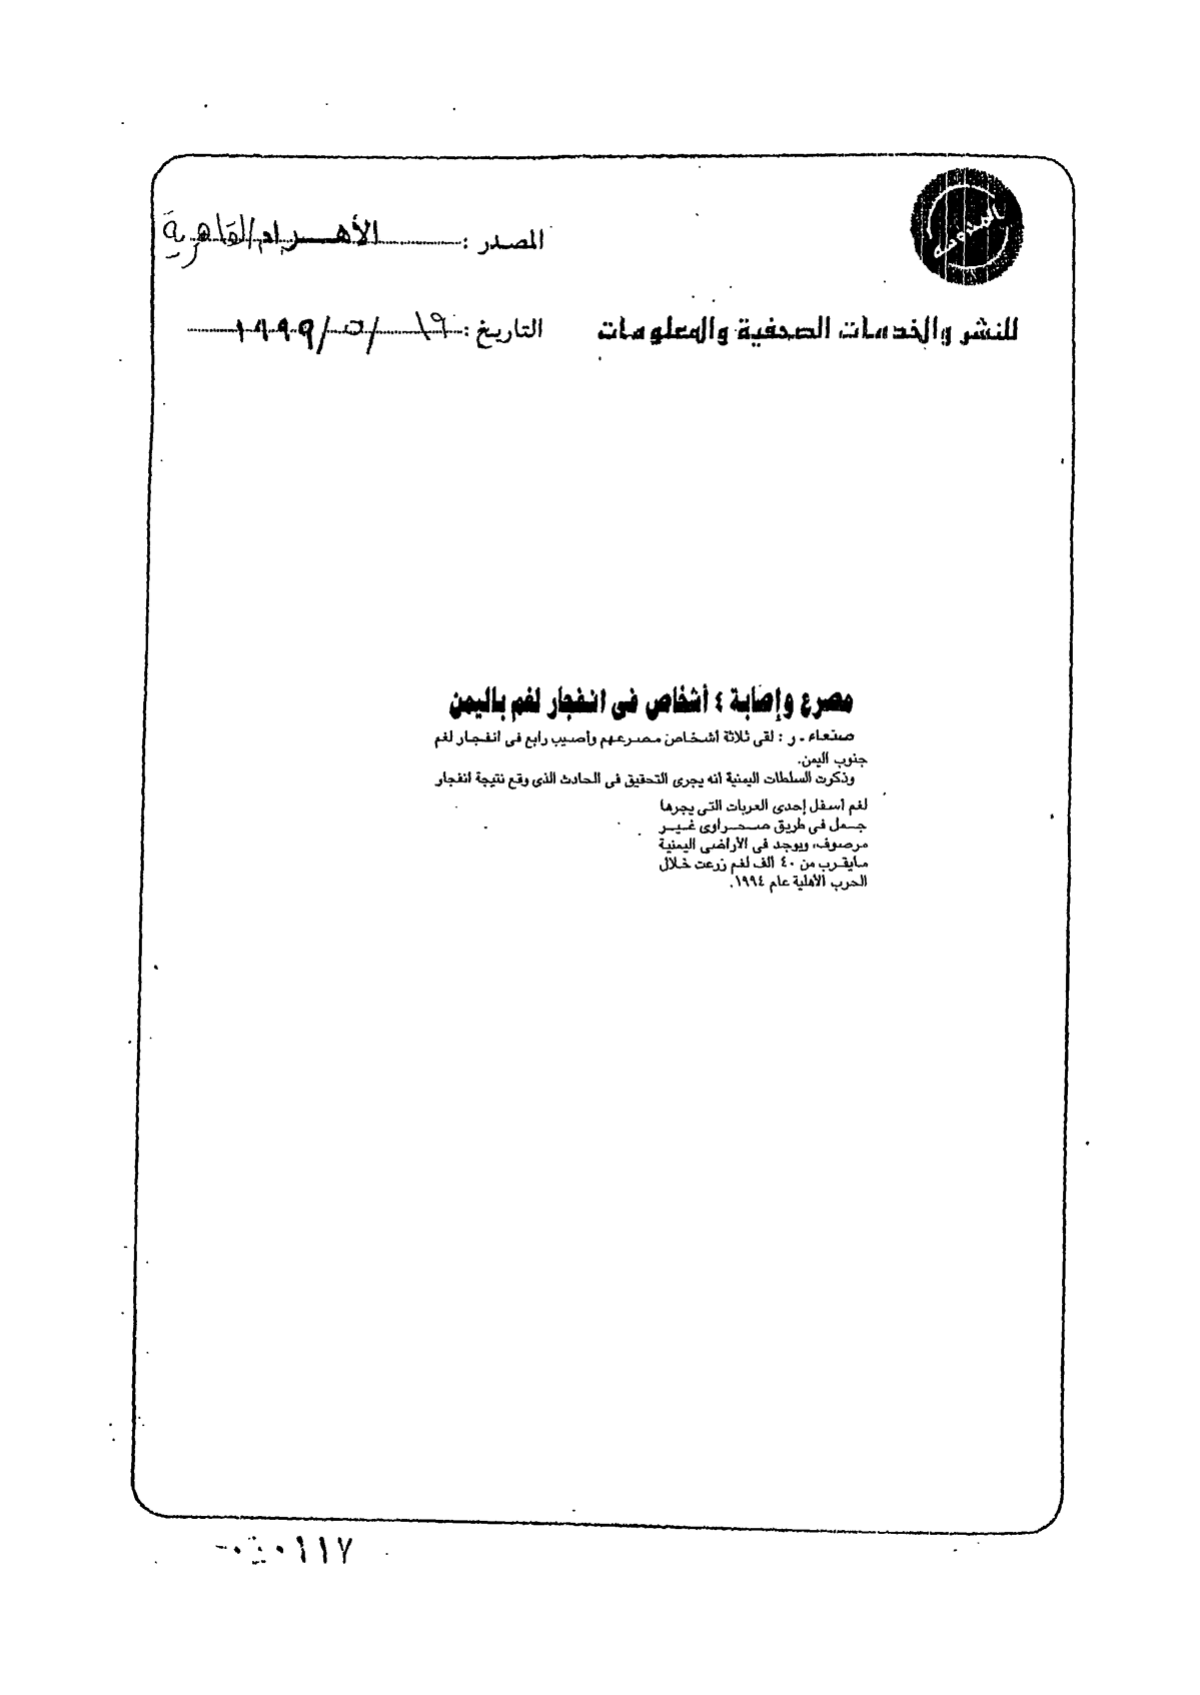 المصدر : الأهرام/القاهرية
للنشر والخدمات الصحفية والمعلومات
التاريخ : ١٩/٥/١٩٩٩
مصرع وإصابة ٤ أشخاص فى انفجار لغم باليمن
صنعاء ـ ر : لقى ثلاثة أشخاص مصرعهم وأصيب رابع فى انفجار لغم
جنوب اليمن.
وذكرت السلطات اليمنية انه يجرى التحقيق فى الحادث الذى وقع نتيجة انفجار
لغم أسفل إحدى العربات التى يجرها
جمل فى طريق صحراوى غير
مرصوف، ويوجد فى الأراضى اليمنية
مايقرب من ٤٠ الف لغم زرعت خلال
الحرب الأهلية عام ١٩٩٤.